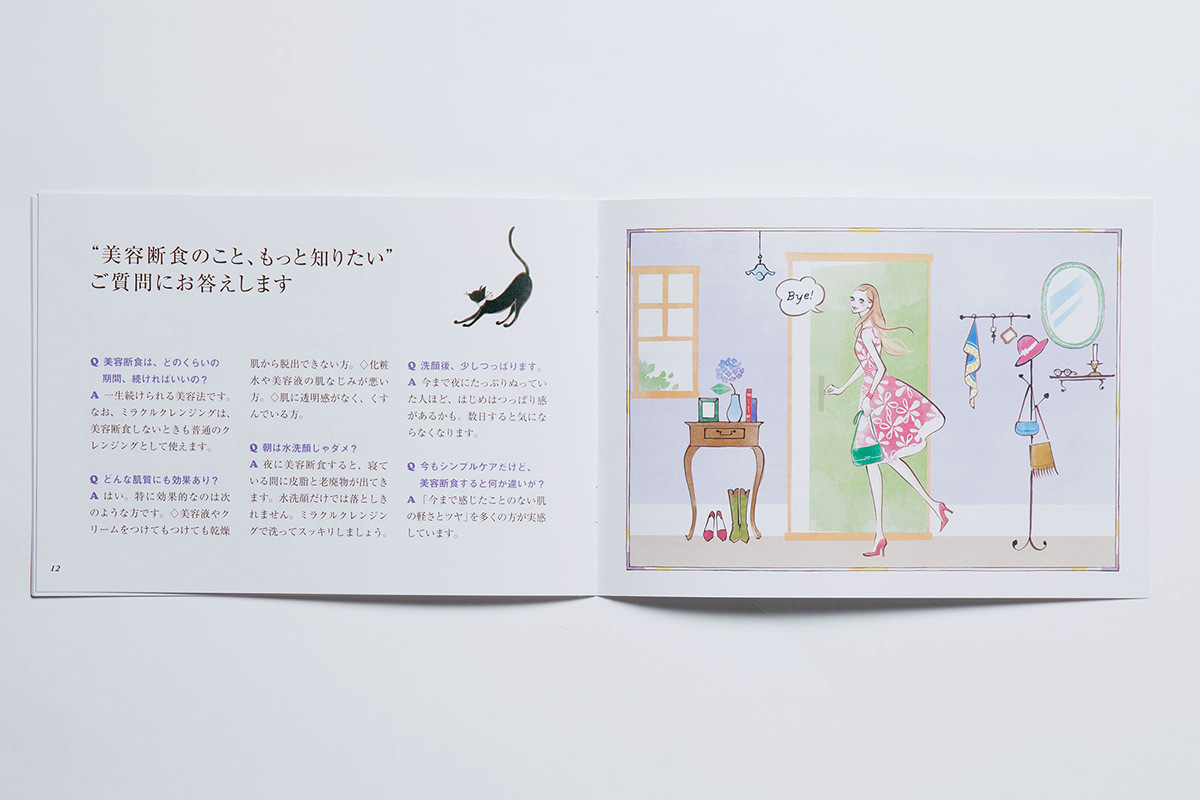 “美容断食のこと、もっと知りたい”
ご質問にお答えします
Q 美容断食は、どのくらいの
期間、続ければいいの？
A 一生続けられる美容法です。
なお、ミラクルクレンジングは、
美容断食しないときも普通のク
レンジングとして使えます。
Q どんな肌質にも効果あり？
A はい。特に効果的なのは次
のような方です。◇美容液やク
リームをつけてもつけても乾燥
肌から脱出できない方。◇化粧
水や美容液の肌なじみが悪い
方。◇肌に透明感がなく、くす
んでいる方。
Q 朝は水洗顔じゃダメ？
A 夜に美容断食すると、寝て
いる間に皮脂と老廃物が出てき
ます。水洗顔だけでは落としき
れません。ミラクルクレンジン
グで洗ってスッキリしましょう。
Q 洗顔後、少しつっぱります。
A 今まで夜にたっぷりぬってい
た人ほど、はじめはつっぱり感
があるかも。数日すると気にな
らなくなります。
Q 今もシンプルケアだけど、
美容断食すると何か違いが？
A 「今まで感じたことのない肌
の軽さとツヤ」を多くの方が実感
しています。
12
Bye!